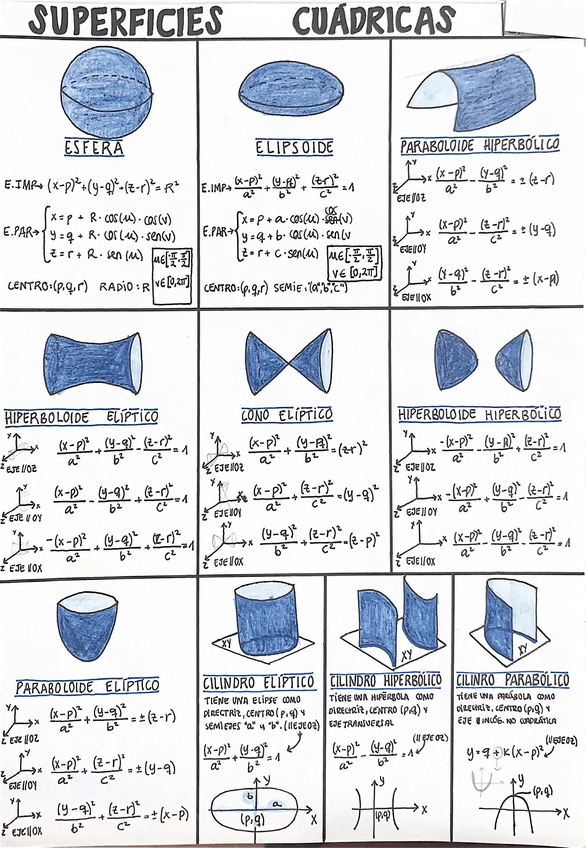 SUPERFICIES CUÁDRICAS
ESFERA
E.IMP→ (x-p)²+(y-q)²+(z-r)²=R²
E.PAR→ { x=p + R · cos(u) · cos(v)
y=q + R · cos(u) · sen(v)
z=r + R · sen(u)
u∈[-π/2, π/2]
v∈[0,2π]
CENTRO:(p,q,r) RADIO: R
ELIPSOIDE
E.IMP→ (x-p)²/a² + (y-q)²/b² + (z-r)²/c² = 1
E.PAR→ { x=p + a · cos(u) · cos(v)
y=q + b · cos(u) · sen(v
z=r + c · sen(u)
u∈[-π/2, π/2]
v∈[0,2π]
CENTRO:(p,q,r) SEMIE: "(a","b","c")
PARABOLOIDE HIPERBÓLICO
Y X Z EJE//OZ (x-p)²/a² - (y-q)²/b² = ±(z-r)
Y X Z EJE//OY (x-p)²/a² - (z-r)²/c² = ±(y-q)
Y X Z EJE//OX (y-q)²/b² - (z-r)²/c² = ±(x-p)
HIPERBOLOIDE ELÍPTICO
Y X Z EJE//OZ (x-p)²/a² + (y-q)²/b² - (z-r)²/c² = 1
Y X Z EJE//OY (x-p)²/a² - (y-q)²/b² + (z-r)²/c² = 1
Y X Z EJE//OX -(x-p)²/a² + (y-q)²/b² + (z-r)²/c² = 1
CONO ELÍPTICO
Y X Z EJE//OZ (x-p)²/a² + (y-q)²/b² = (z-r)²
Y X Z EJE//OY (x-p)²/a² + (z-r)²/c² = (y-q)²
Y X Z EJE//OX (y-q)²/b² + (z-r)²/c² = (z-p)²
HIPERBOLOIDE HIPERBÓLICO
Y X Z EJE//OZ -(x-p)²/a² - (y-q)²/b² + (z-r)²/c² = 1
Y X Z EJE//OY -(x-p)²/a² + (y-q)²/b² - (z-r)²/c² = 1
Y X Z EJE//OX (x-p)²/a² - (y-q)²/b² - (z-r)²/c² = 1
PARABOLOIDE ELÍPTICO
Y X Z EJE//OZ (x-p)²/a² + (y-q)²/b² = ±(z-r)
Y X Z EJE//OY (x-p)²/a² + (z-r)²/c² = ±(y-q)
Y X Z EJE//OX (y-q)²/b² + (z-r)²/c² = ±(x-p)
XY
CILINDRO ELÍPTICO
TIENE UNA ELIPSE COMO
DIRECTRIZ, CENTRO (p,q) Y
SEMIEJES "a" y "b". (//EJE OZ)
(x-p)²/a² + (y-q)²/b² = 1
Y
b a
(p,q) X
XY
CILINDRO HIPERBÓLICO
TIENE UNA HIPÉRBOLA COMO
DIRECTRIZ, CENTRO (p,q) Y
EJE TRANSVERSAL
(// EJE OZ)
(x-p)²/a² - (y-q)²/b² = 1
Y
(p,q) X
XY
CILINRO PARABÓLICO
TIENE UNA PARÁBOLA COMO
DIRECTRIZ, CENTRO (p,q) Y
EJE // INCÓG. NO CUADRÁTICA
(//EJE OZ)
y = q + k(x-p)²
Y
(p,q)
X